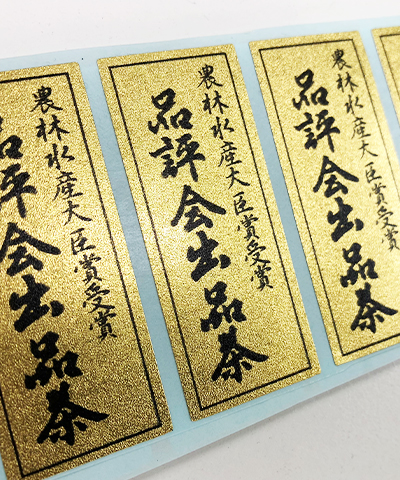 農林水産大臣賞受賞
品評会出品茶
農林水産大臣賞受賞
品評会出品茶
農林水産大臣賞受賞
品評会出品茶